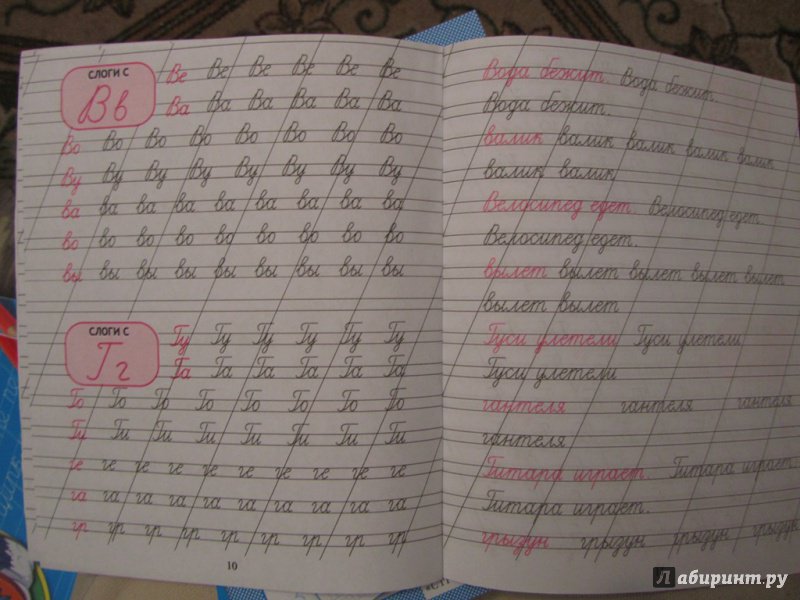 СЛОГИ С
Вв
Ве Ве Ве Ве Ве Ве
Ва Ва Ва Ва Ва Ва
Во Во Во Во Во Во Во Во
Ву Ву Ву Ву Ву Ву Ву Ву
ва ва ва ва ва ва ва ва ва
во во во во во во во во во
вы вы вы вы вы вы вы вы вы
СЛОГИ С
Гг
Гу Гу Гу Гу Гу Гу
Га Га Га Га Га Га
Го Го Го Го Го Го Го Го
Ги Ги Ги Ги Ги Ги Ги Ги
ге ге ге ге ге ге ге ге ге ге
га га га га га га га га га га
гр гр гр гр гр гр гр гр гр гр
10
Вода бежит. Вода бежит.
Вода бежит.
валик валик валик валик валик
валик валик
Велосипед едет. Велосипед едет.
Велосипед едет.
вылет вылет вылет вылет вылет
вылет вылет
Гуси улетели Гуси улетели
Гуси улетели
гантеля гантеля гантеля
гантеля
Гитара играет. Гитара играет.
Гитара играет.
грызун грызун грызун грызун
Лабиринт.ру